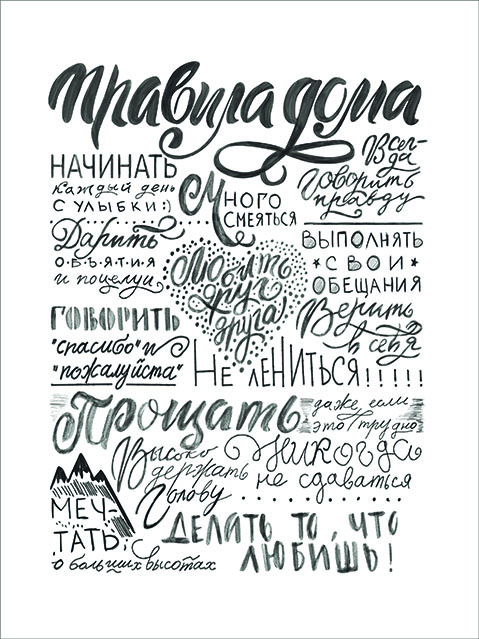 Правила дома
НАЧИНАТЬ
каждый день
С УЛЫБКИ :)
Много
СМЕЯТЬСЯ
Всег-
да
говорить
правду
Дарить
О·Б·Ъ·Я·Т·И·Я
и поцелуи
Любить
друг
друга!
ВЫПОЛНЯТЬ
СВОИ
ОБЕЩАНИЯ
ГОВОРИТЬ
"спасибо" и
"пожалуйста"
Верить
в себя
НЕ ЛЕНИТЬСЯ!!!!!
Прощать
даже если
это трудно
Высоко
держать
голову
Никогда
не сдаваться
МЕЧ-
ТАТЬ
о больших высотах
ДЕЛАТЬ ТО, ЧТО
ЛЮБИШЬ!